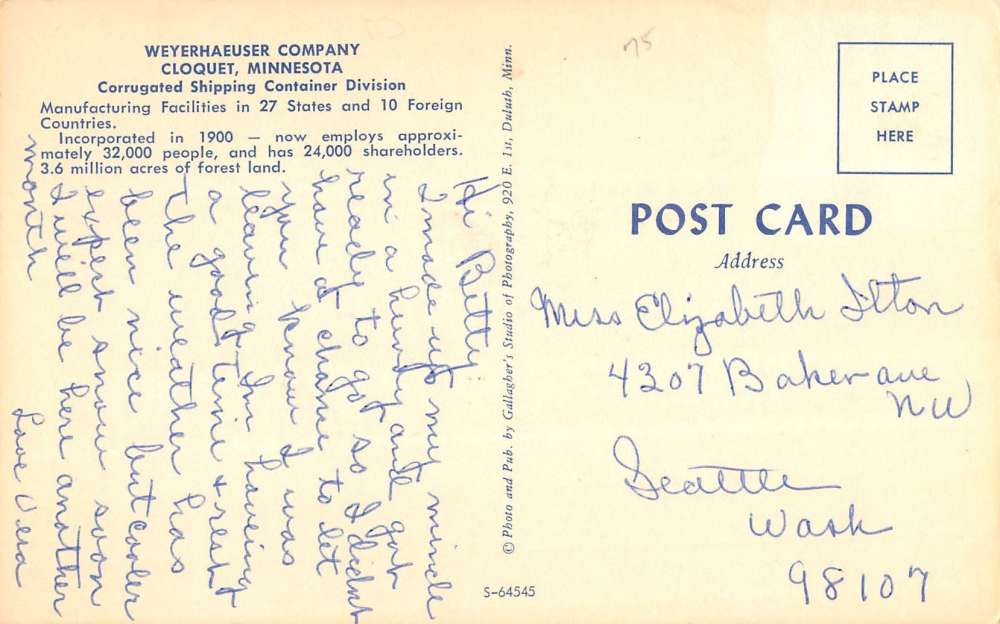 WEYERHAEUSER COMPANY
CLOQUET, MINNESOTA
Corrugated Shipping Container Division
Manufacturing Facilities in 27 States and 10 Foreign
Countries.
Incorporated in 1900 — now employs approxi-
mately 32,000 people, and has 24,000 shareholders.
3.6 million acres of forest land.
Hi Betty
I made up my mind
in a hurry and got
ready to go so I didnt
have a chance to let
you know I was
leaving. Im haveing
a good time & rest
The weather has
been nice but cooler
expect snow soon
I will be here another
month
Love Vera
© Photo and Pub. by Gallagher's Studio of Photography, 920 E. 1st, Duluth, Minn.
S-64545
75
PLACE
STAMP
HERE
POST CARD
Address
Miss Elizabeth Ilton
4207 Baker ave
NW
Seattle
Wash
98107